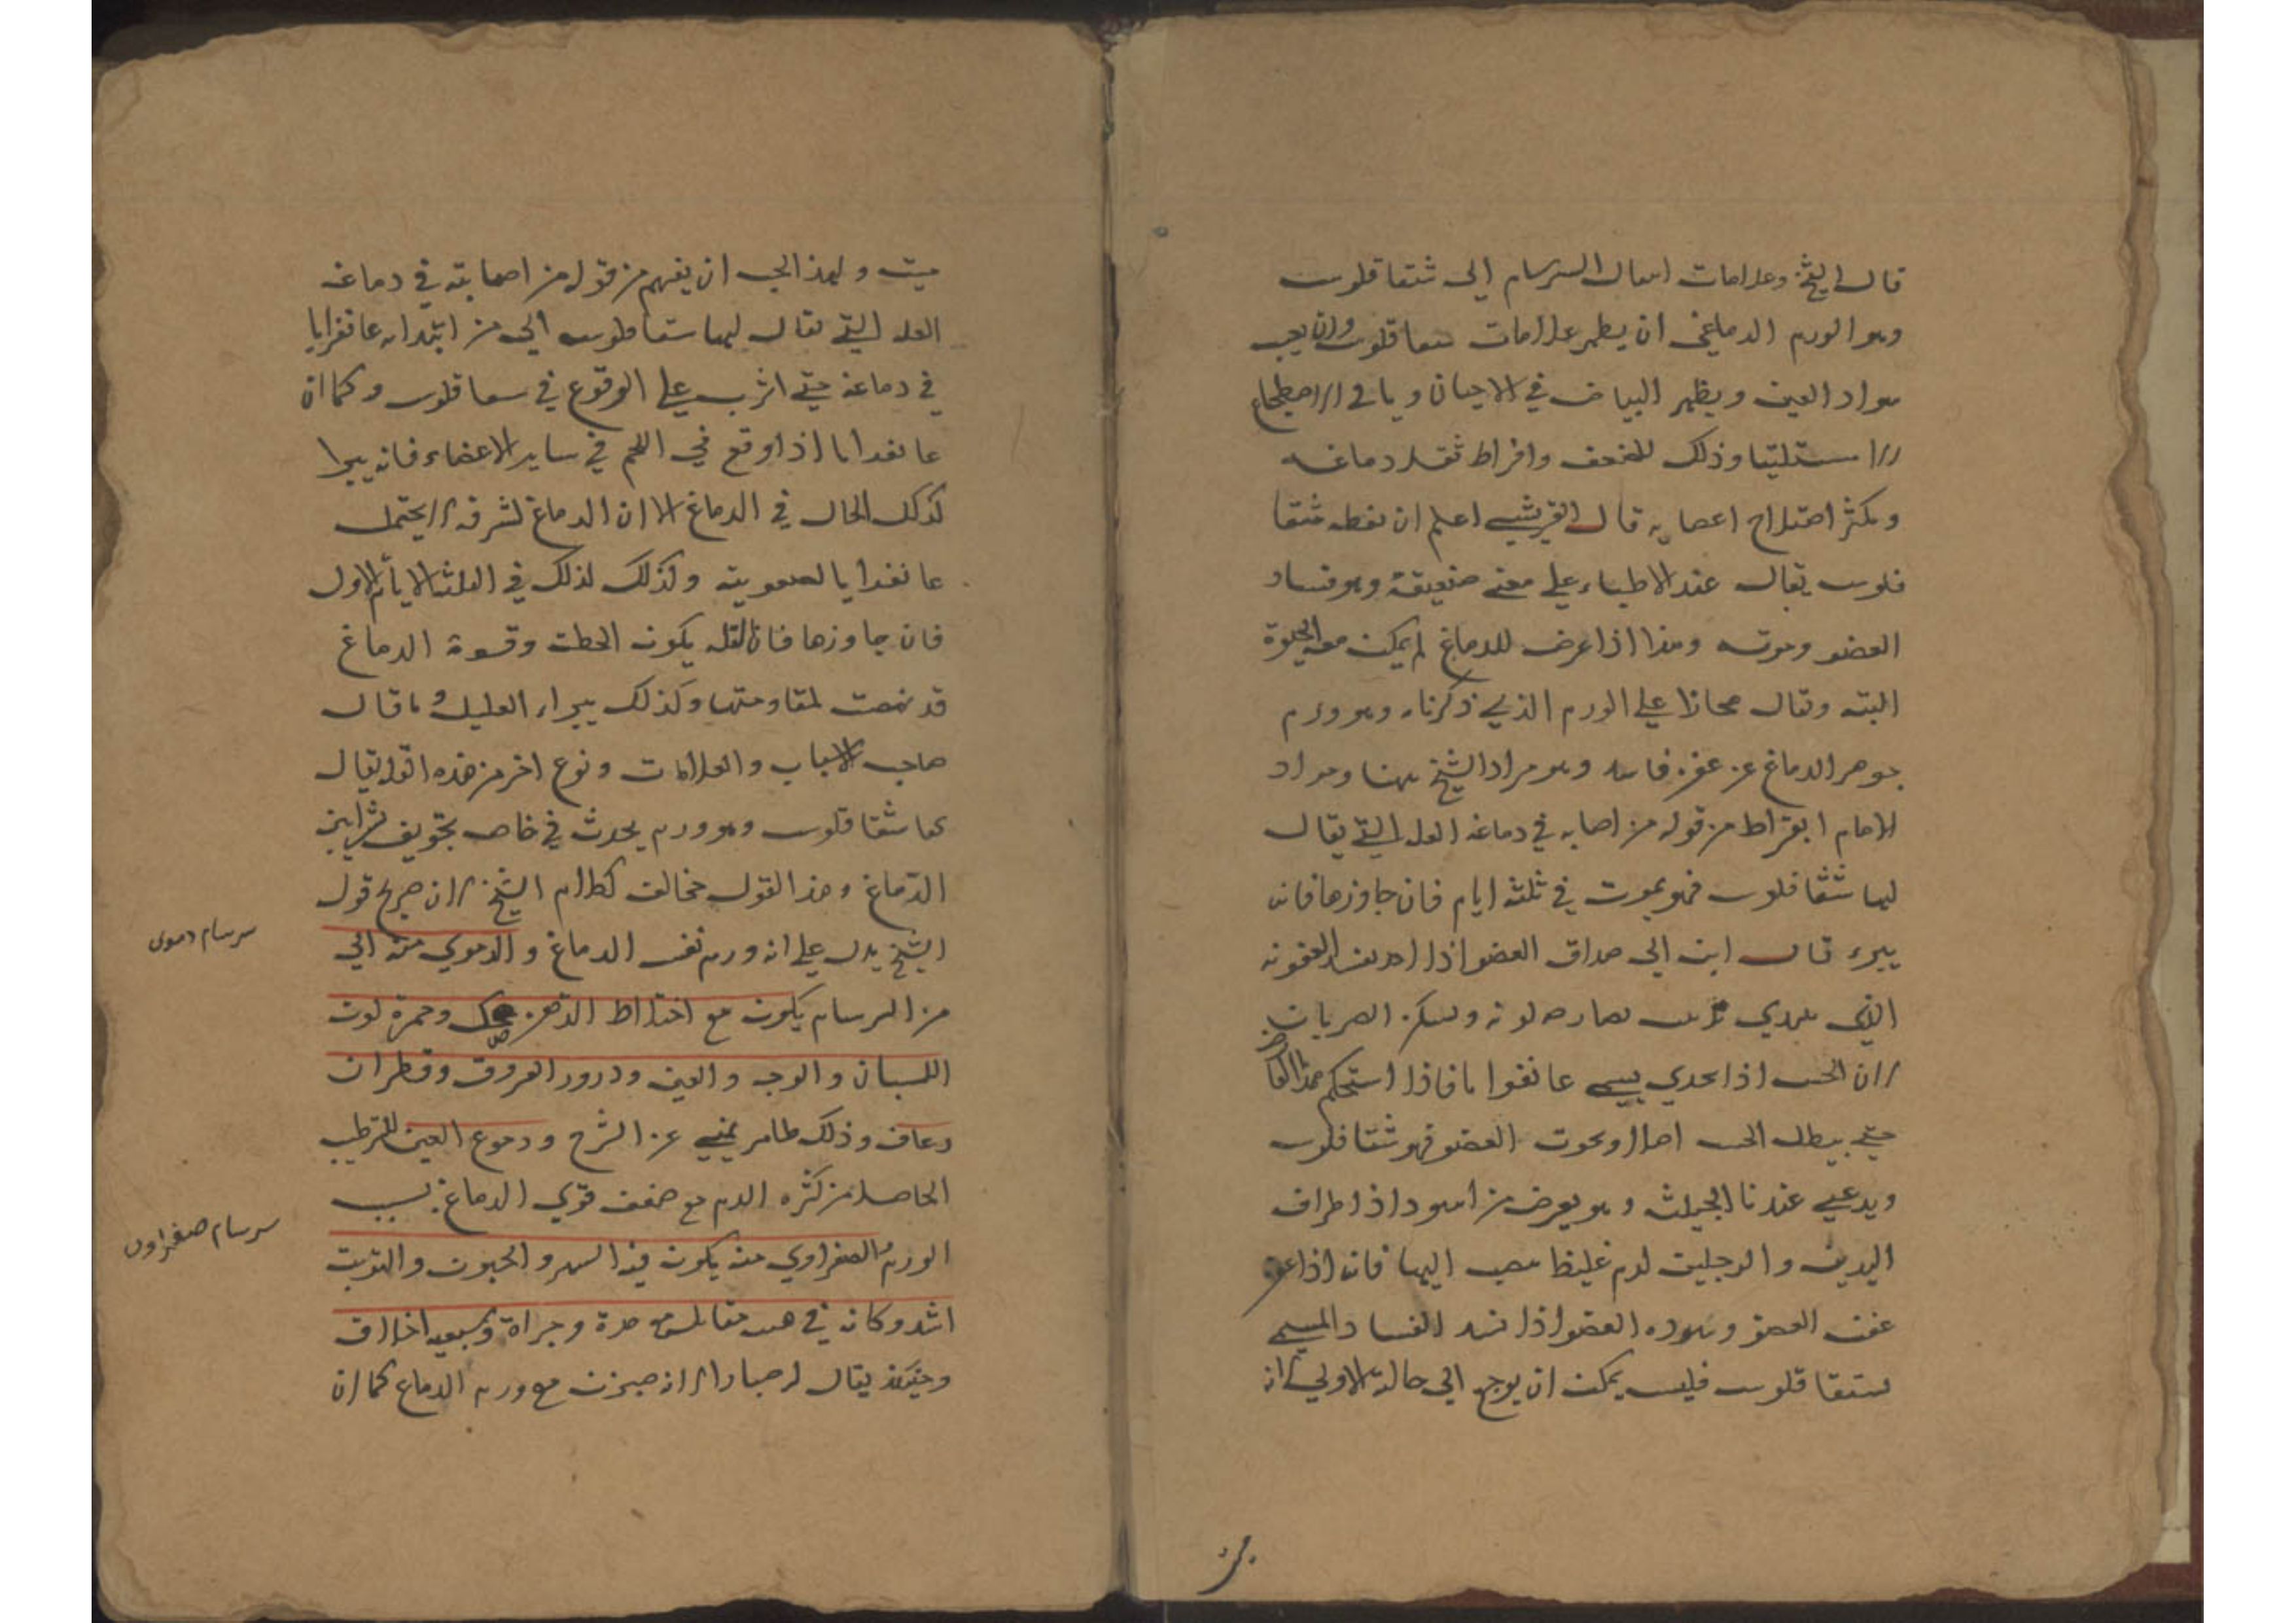 قال الشيخ وعلامات انتقال السرسام الى شقاقلوس
وهو الورم الدماغي ان يظهر علامات سقاقلوس وان يغيب
سواد العين ويظهر البياض في الاحيان ويابي الاضطجاع
الا مستلقيا وذلك للضعف وافراط ثقل دماغه
ويكثر اختلاج اعصابه قال القريشي اعلم ان لفظه شقا
قلوس يقال عند الاطباء علي معني حقيقة وهو فساد
العضو وموته وهذا اذا عرض للدماغ لم يمكن معه الحيوة
البته ويقال مجازا علي الورم الذي ذكرناه وهو ورم
جوهر الدماغ عن عفن فاسد وهو مراد الشيخ ههنا ومراد
الامام ابقراط من قوله من اصابه في دماغه العله التي يقال
لها شقاقلوس فهو يموت في ثلثه ايام فان جاوزها فانه
يبرء قال ابن ابي صداق العضو اذا العفونه
الذي يبتدي
لان الحس اذا يبتدي يسمي عانغرايا فاذا استحكم هذا العارض
حتي يبطل الحس اصلا ويموت العضو فهو شقاقلوس
ويدعي عندنا الخبيث وهو يعرض من اسوداد اطراف
اليدين والرجلين لدم غليظ ينصب اليها فانه اذا
عفن العضو وسوده العضو اذا فسد الفساد المسمي
سقاقلوس فليس يمكن ان يرجع الي حالة الاولي لانه
ميت
ميت ولهذا يجب ان يفهم من قوله من اصابته في دماغه
العله التي يقال لها سقاقلوس الي من ابتدا به عانغرايا
في دماغه حتي اشرب علي الوقوع في سقاقلوس وكما ان
عانغرايا اذا وقع في اللحم في ساير الاعضاء فانه يبرا
كذلك الحال في الدماغ الا ان الدماغ لشرفه لا يحتمل
عانغرايا لصعوبته ولذلك لذلك في الثلثه الايام الاول
فان جاوزها فان العله يكون انحطت وقسوة الدماغ
قد نهضت لمقاومتها وكذلك يبراء العليل وما قال
صاحب الاسباب والعلامات ونوع اخر من هذه القول يقال
لها شقاقلوس وهو ورم يحدث في خاص تجويف شرايين
الدماغ وهذا القول مخالف لكلام الشيخ لان صريح قول
الشيخ يدل علي انه ورم نفس الدماغ والدموي منه الي
من السرسام يكون مع اختلاط الذهن ضحك وحمرة لون
اللسان والوجه والعين ودرور العروق وقطرات
رعاف وذلك ظاهر يغني عن الشرح ودموع العين للترطيب
الحاصل من كثره الدم مع ضعف قوي الدماغ بسبب
الورم والصفراوي منه يكون فيه السهر والجنون والتوثب
اشد وكانه في هيئة مقاتل مع حدة وجراة وسبعيه اخلاق
وحينئذ يقال له صبارا لانه جنون مع ورم الدماغ كما ان
سرسام دموى
سرسام صفراوى